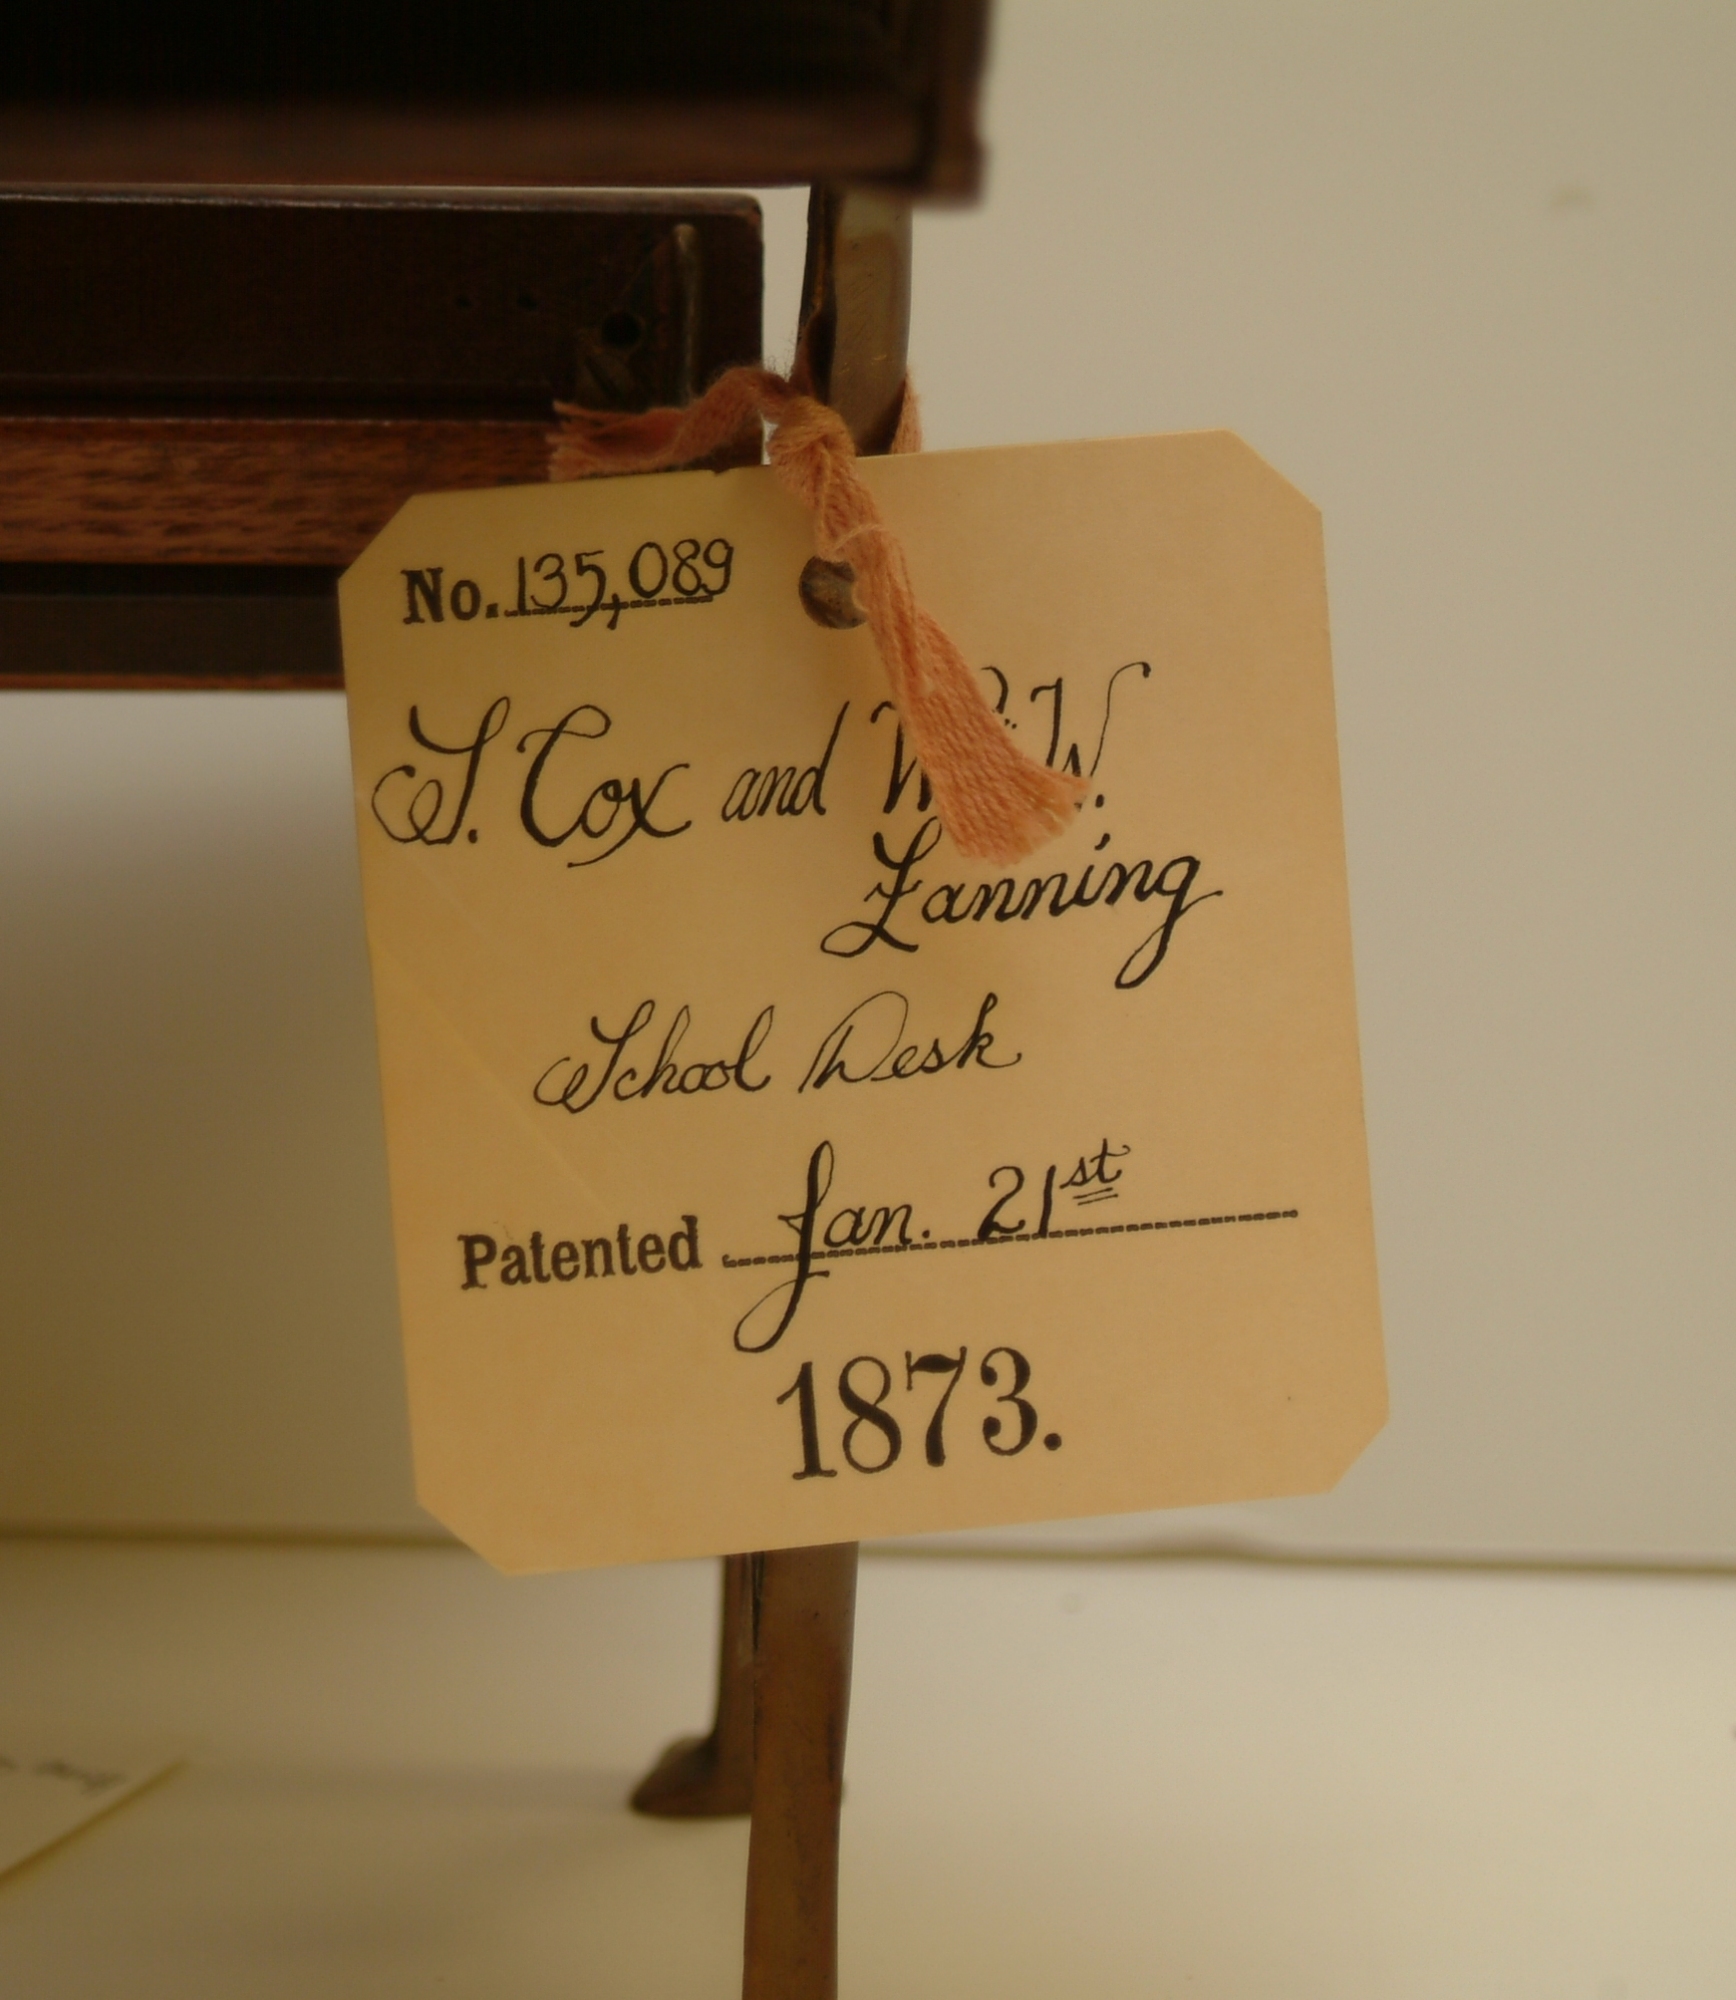 No. 135,089
S. Cox and W. W.
Fanning
School Desk
Patented Jan. 21st
1873.